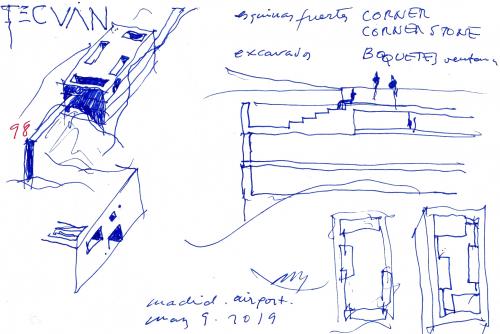 TECVAN
esquinas fuertes CORNER
CORNERSTONE
excavado BOQUETES ventana
98
madrid. airport.
may 9. 2019